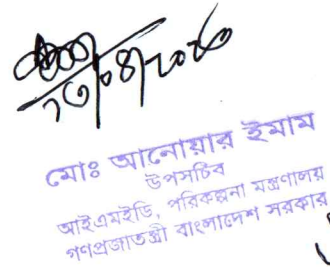 মোঃ আনোয়ার ইমাম
উপসচিব
আইএমইডি, পরিকল্পনা মন্ত্রণালয়
গণপ্রজাতন্ত্রী বাংলাদেশ সরকার